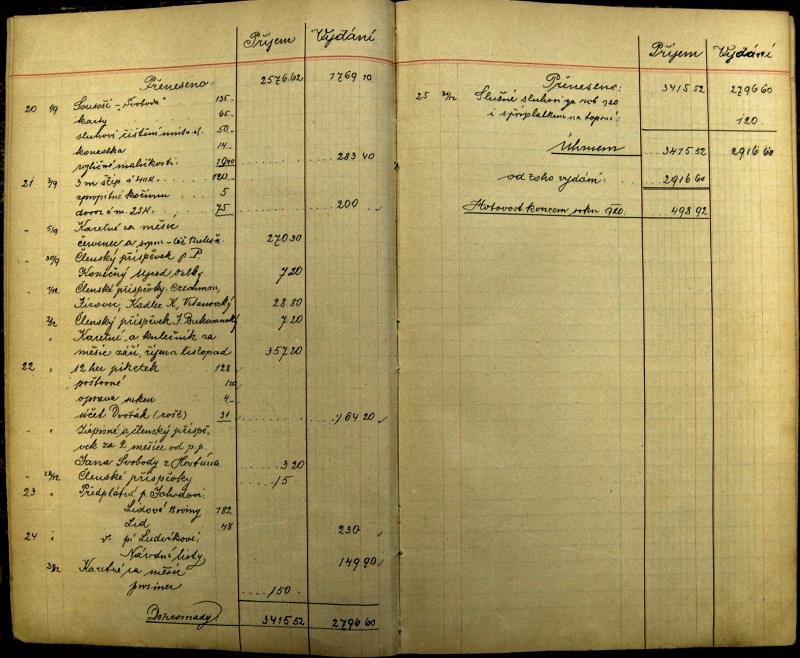 Příjem Vydání
Přeneseno: 2576.62 1769 10
20 4/9 Sousoší "Svoboda" 135.-
karty 65.-
sluhovi čištění 50.-
konestka 14.-
různé maličkosti: 19.40 283 40
21 7/9 3 m štíp. á 40K. 120.-
zpropitné kočímu 5
dovoz á m. 25K. 75 200
- 5/9 Karetné za měsíc
červenec a srpen 270 30
- 30/9 Členský příspěvek p. P.
Konečný Újezd 7 20
- 1/12 Členské příspěvky. Czechman,
Jírovec, Kadlec K, Vršanovský 28.80
7/12 Členský příspěvek J. Bukovanský 7 20
" Karetné a kulečník za
měsíc září, října a listopad 357 20
22 " 12 her piketek 128
poštovné 1 20
oprava 4.-
účet Dvořák (rošt) 31 164 20
- " Zápisné a členský příspě-
vek za 2 měsíce od p. p.
Jana Svobody z Hostína 3 20
- 28/12 Členské příspěvky 15
23 " Předplatné p. Jahodovi:
Lidové Noviny 182
Lid 48 230
24 " pí Ludvíkové;
Národní listy 149 90
31/12 Karetné za měsíc
prosinec 150
Dohromady: 3415 52 2796 60
Příjem Vydání
Přeneseno: 3415 52 2796 60
25 31/12 Služné sluhovi za rok 920
i s příplatkem na topení: 120.
Úhrnem 3415 52 2916 60
od toho vydání: 2916 60
Hotovost koncem roku 920. 498 92